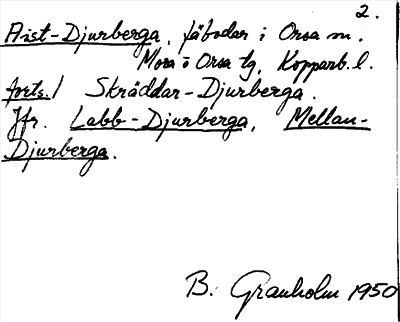 2.
Aist-Djurberga, fäbodar i Orsa sn.
Mora o Orsa tg, Kopparb. l.
forts./ Skräddar-Djurberga.
Jfr. Labb-Djurberga, Mellan-
Djurberga.
B. Granholm 1950